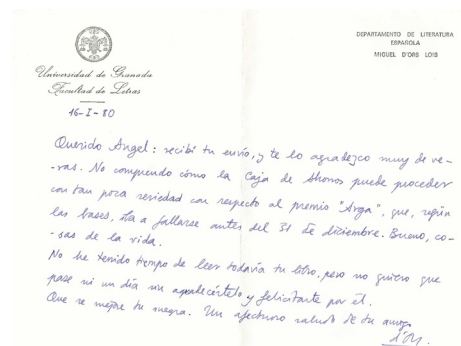 DEPARTAMENTO DE LITERATURA
ESPAÑOLA
MIGUEL D'ORS LOIS
Universidad de Granada
Facultad de Letras
16-I-80
Querido Angel: recibí tu envío, y te lo agradezco muy de ve-
-ras. No comprendo cómo la Caja de Ahorros puede proceder
con tan poca seriedad con respecto al premio "Arga", que, según
las bases, iba a fallarse antes del 31 de diciembre. Bueno, co-
sas de la vida.
No he tenido tiempo de leer todavía tu libro, pero no quiero que
pase ni un día sin agradecértelo y felicitarte por él.
Que se mejore tu suegra. Un afectuoso saludo de tu amigo
d'Ors